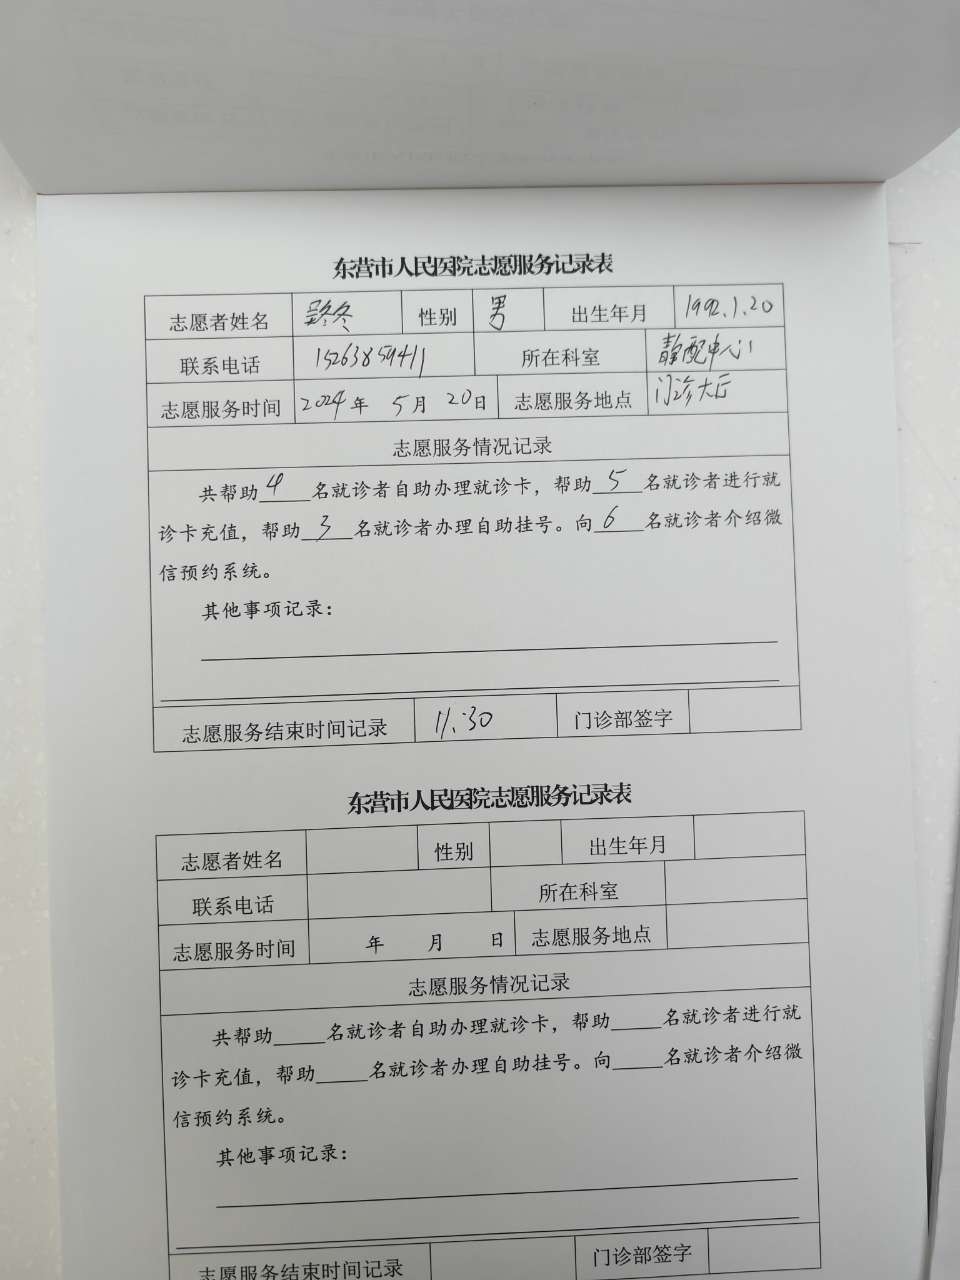 东营市人民医院志愿服务记录表
志愿者姓名 路冬 性别 男 出生年月 1992.1.20
联系电话 15263859411 所在科室 静配中心
志愿服务时间 2024年 5月 20日 志愿服务地点 门诊大厅
志愿服务情况记录
共帮助4名就诊者自助办理就诊卡，帮助5名就诊者进行就
诊卡充值，帮助3名就诊者办理自助挂号。向6名就诊者介绍微
信预约系统。
其他事项记录：
志愿服务结束时间记录 11:30 门诊部签字
东营市人民医院志愿服务记录表
志愿者姓名 性别 出生年月
联系电话 所在科室
志愿服务时间 年 月 日 志愿服务地点
志愿服务情况记录
共帮助____名就诊者自助办理就诊卡，帮助____名就诊者进行就
诊卡充值，帮助____名就诊者办理自助挂号。向____名就诊者介绍微
信预约系统。
其他事项记录：
志愿服务结束时间记录 门诊部签字